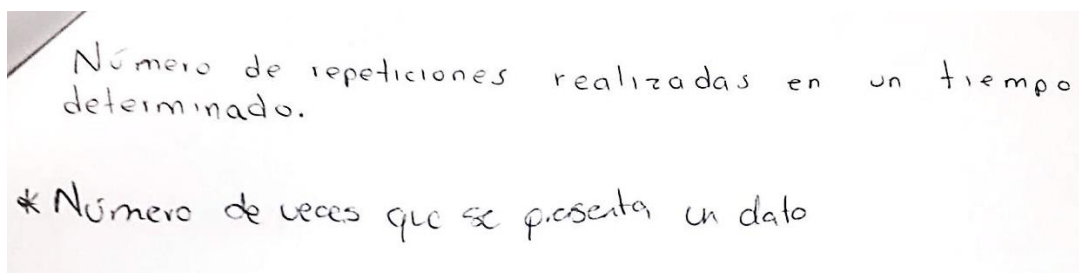 Número de repeticiones realizadas en un tiempo
determinado.
* Número de veces que se presenta un dato